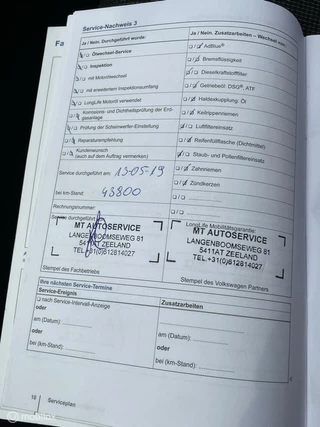 Service-Nachweis 3
Ja / Nein. Durchgeführt wurde:
Ölwechsel-Service
Inspektion
mit Motorölwechsel
mit erweitertem Inspektionsumfang
LongLife Motoröl verwendet
Korrosions- und Dichtheitsprüfung der Erdgasanlage
Prüfung der Scheinwerfer-Einstellung
Reparaturempfehlung
Kundenwunsch
(auch auf dem Auftrag vermerken)
Service durchgeführt am: 13-05-19
bei km-Stand: 43800
Rechnungsnummer:
Service durchgeführt
MT AUTOSERVICE
LANGENBOOMSEWEG 81
5411AT ZEELAND
TEL.+31(0)612814027
Stempel des Fachbetriebs
Ja / Nein. Zusatzarbeiten – Wechsel von:
AdBlue®
Bremsflüssigkeit
Dieselkraftstofffilter
Getriebeöl: DSG®, ATF
Haldexkupplung: Öl
Keilrippenriemen
Luftfiltereinsatz
Reifenfüllflasche (Dichtmittel)
Staub- und Pollenfiltereinsatz
Zahnriemen
Zündkerzen
LongLife Mobilitätsgarantie:
MT AUTOSERVICE
LANGENBOOMSEWEG 81
5411AT ZEELAND
TEL.+31(0)612814027
Stempel des Volkswagen Partners
Ihre nächsten Service-Termine
Service-Ereignis
nach Service-Intervall-Anzeige
oder
am (Datum):
oder
bei (km-Stand):
Zusatzarbeiten
am (Datum):
oder
bei (km-Stand):
Serviceplan